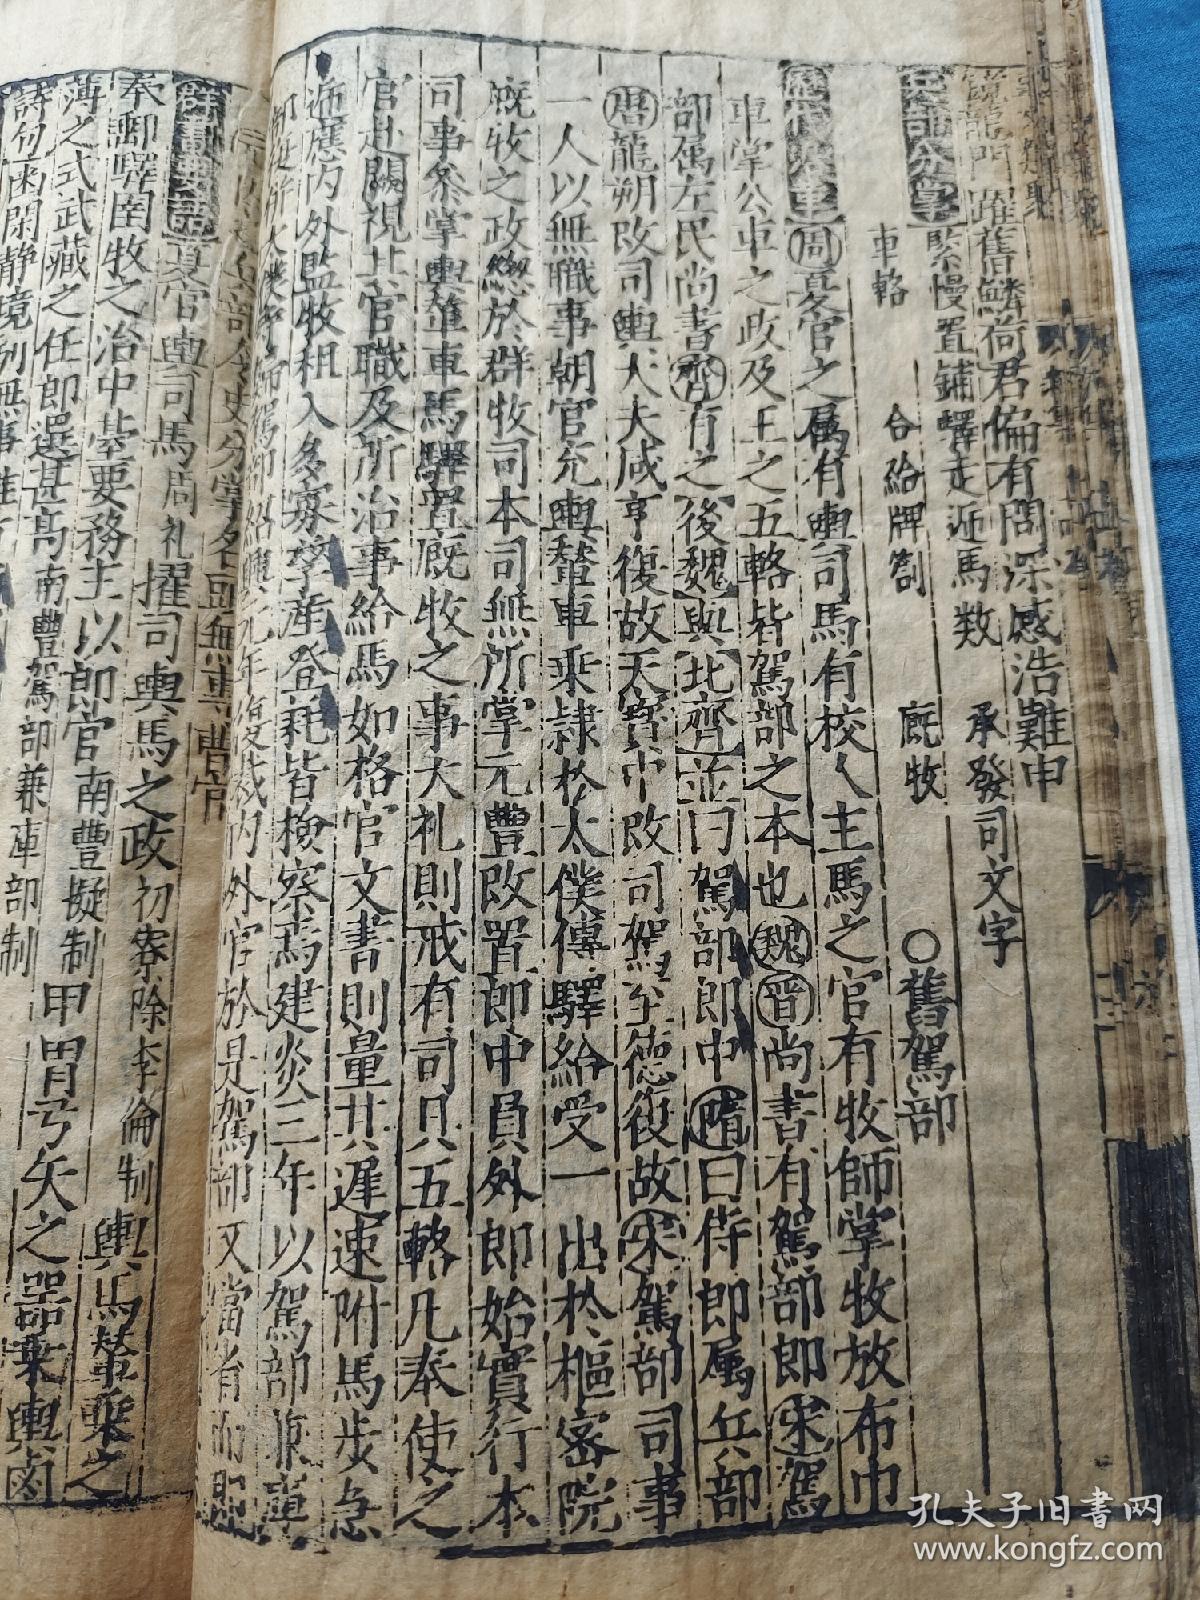 龍門躍舊鱗荷君偏有問深感浩難申
兵部分掌 緊慢置鋪驛走逓馬数 承發司文字
車輅 合給牌劄 廐牧 〇舊駕部
歷代㳂革 周夏官之属有輿司馬有校人主馬之官有牧師掌牧放布巾
車掌公車之政及王之五輅皆駕部之本也魏晋尚書有駕部郎宋駕
部属左民尚書齊有之後魏與北齊並曰駕部郎中隋曰侍郎属兵部
唐龍朔改司輿大夫咸亨復故天寳中改司駕至德復故宋駕部司事
一人以無職事朝官充輿輦車乘隷於太僕傳驛給受一出於樞宻院
廐牧之政緫於群牧司本司無所掌元豐改置郎中員外郎始實行本
司事叅掌輿輦車馬驛置廐牧之事大礼則戒有司具五輅凡奉使之
官赴闕視其官職及所治事給馬如格官文書則量其遲速附馬歩急
逓應内外監牧租入多寡孳産登耗皆檢察焉建炎三年以駕部兼庫
年後裁内外官於是駕部又當省而
部令史分掌名頭無專典官
群書要語 夏官輿司馬周礼擢司輿馬之政初寮除李倫制輿馬輦乘之
奉郵驛圉牧之治中臺要務主以郎官南豐擬制甲冑弓矢之器乘輿鹵
薄之式武藏之任郎選甚髙南豐駕部兼庫部制
詩句 閑静境列無事
孔夫子旧書网
www.kongfz.com